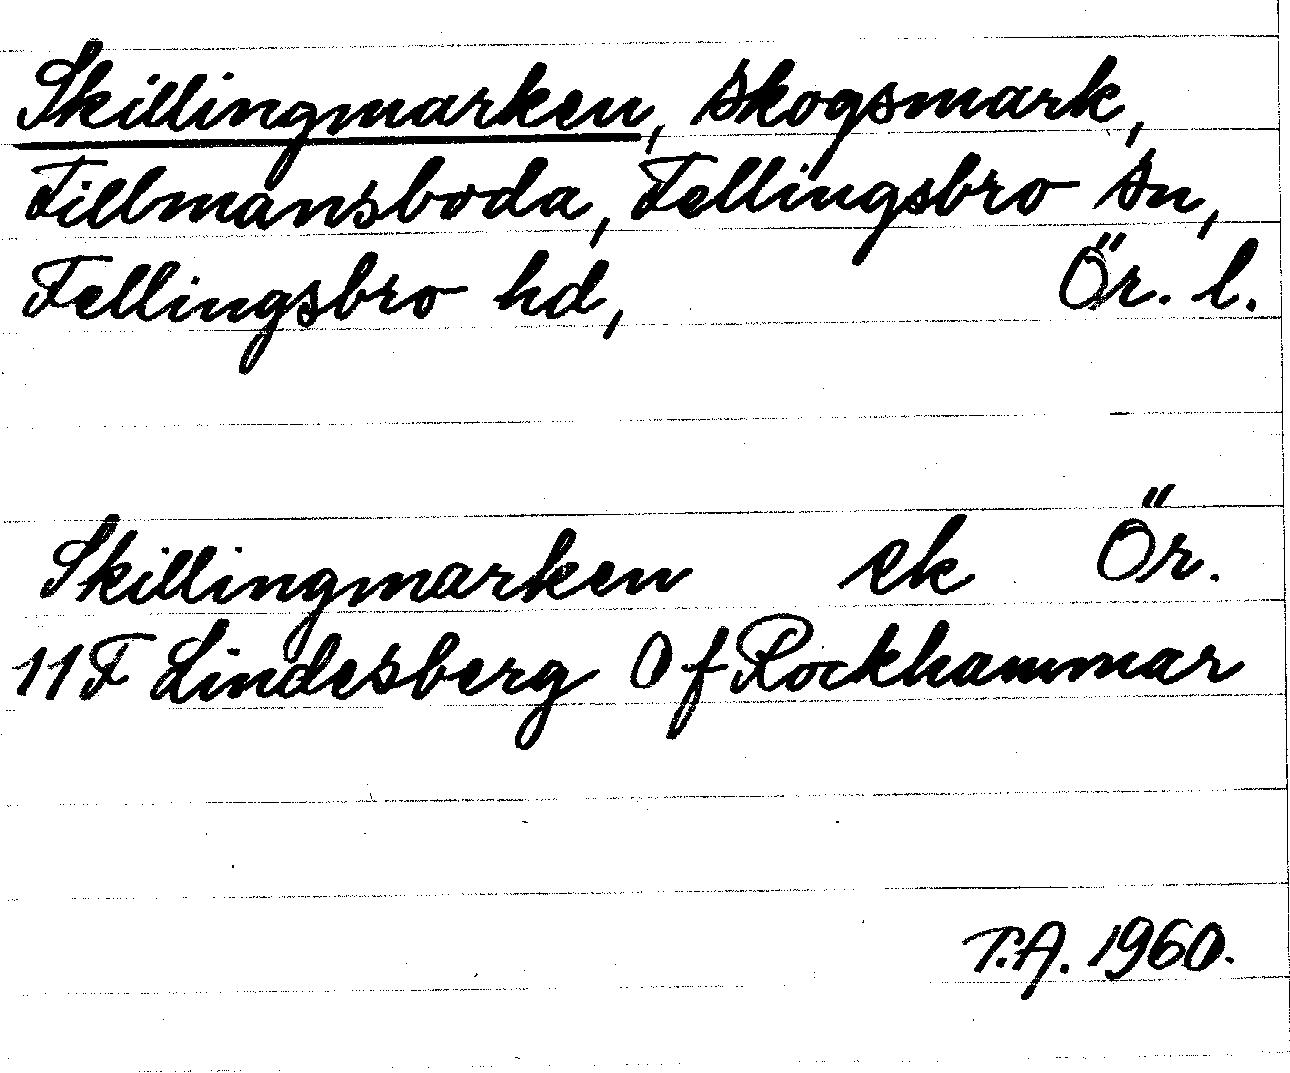 Skillingmarken, skogsmark,
Fillmansboda, Fellingsbro sn,
Fellingsbro hd, Ör. l.
Skillingmarken ek Ör.
11F Lindesberg 0 f Rockhammar
T.A. 1960.